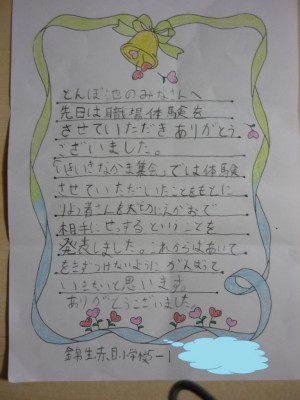 とんぼ池のみなさんへ
先日は職場体験を
させていただきありがとう
ございました。
「いきいきなかま集会」では体験
させていただいたことをもとに
りよう者さんを大切にえがおで
相手にせっするということを
発表しました。これからはあいて
をきずつけないように がんばって
いきたいと思います。
ありがとうございました。
錦生赤目小学校5-1